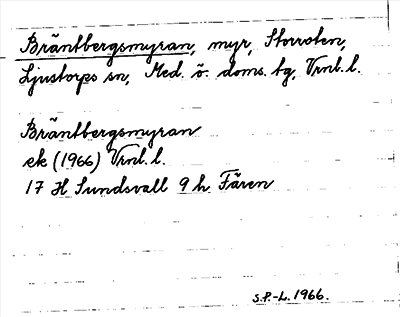 Bräntbergsmyran, myr, Storroten,
Ljustorps sn, Med. ö. doms. tg, Vrnl. l.
Bräntbergsmyran
ek (1966) Vrnl. l.
17 H Sundsvall 9 h Fären
S.P.-L. 1966.